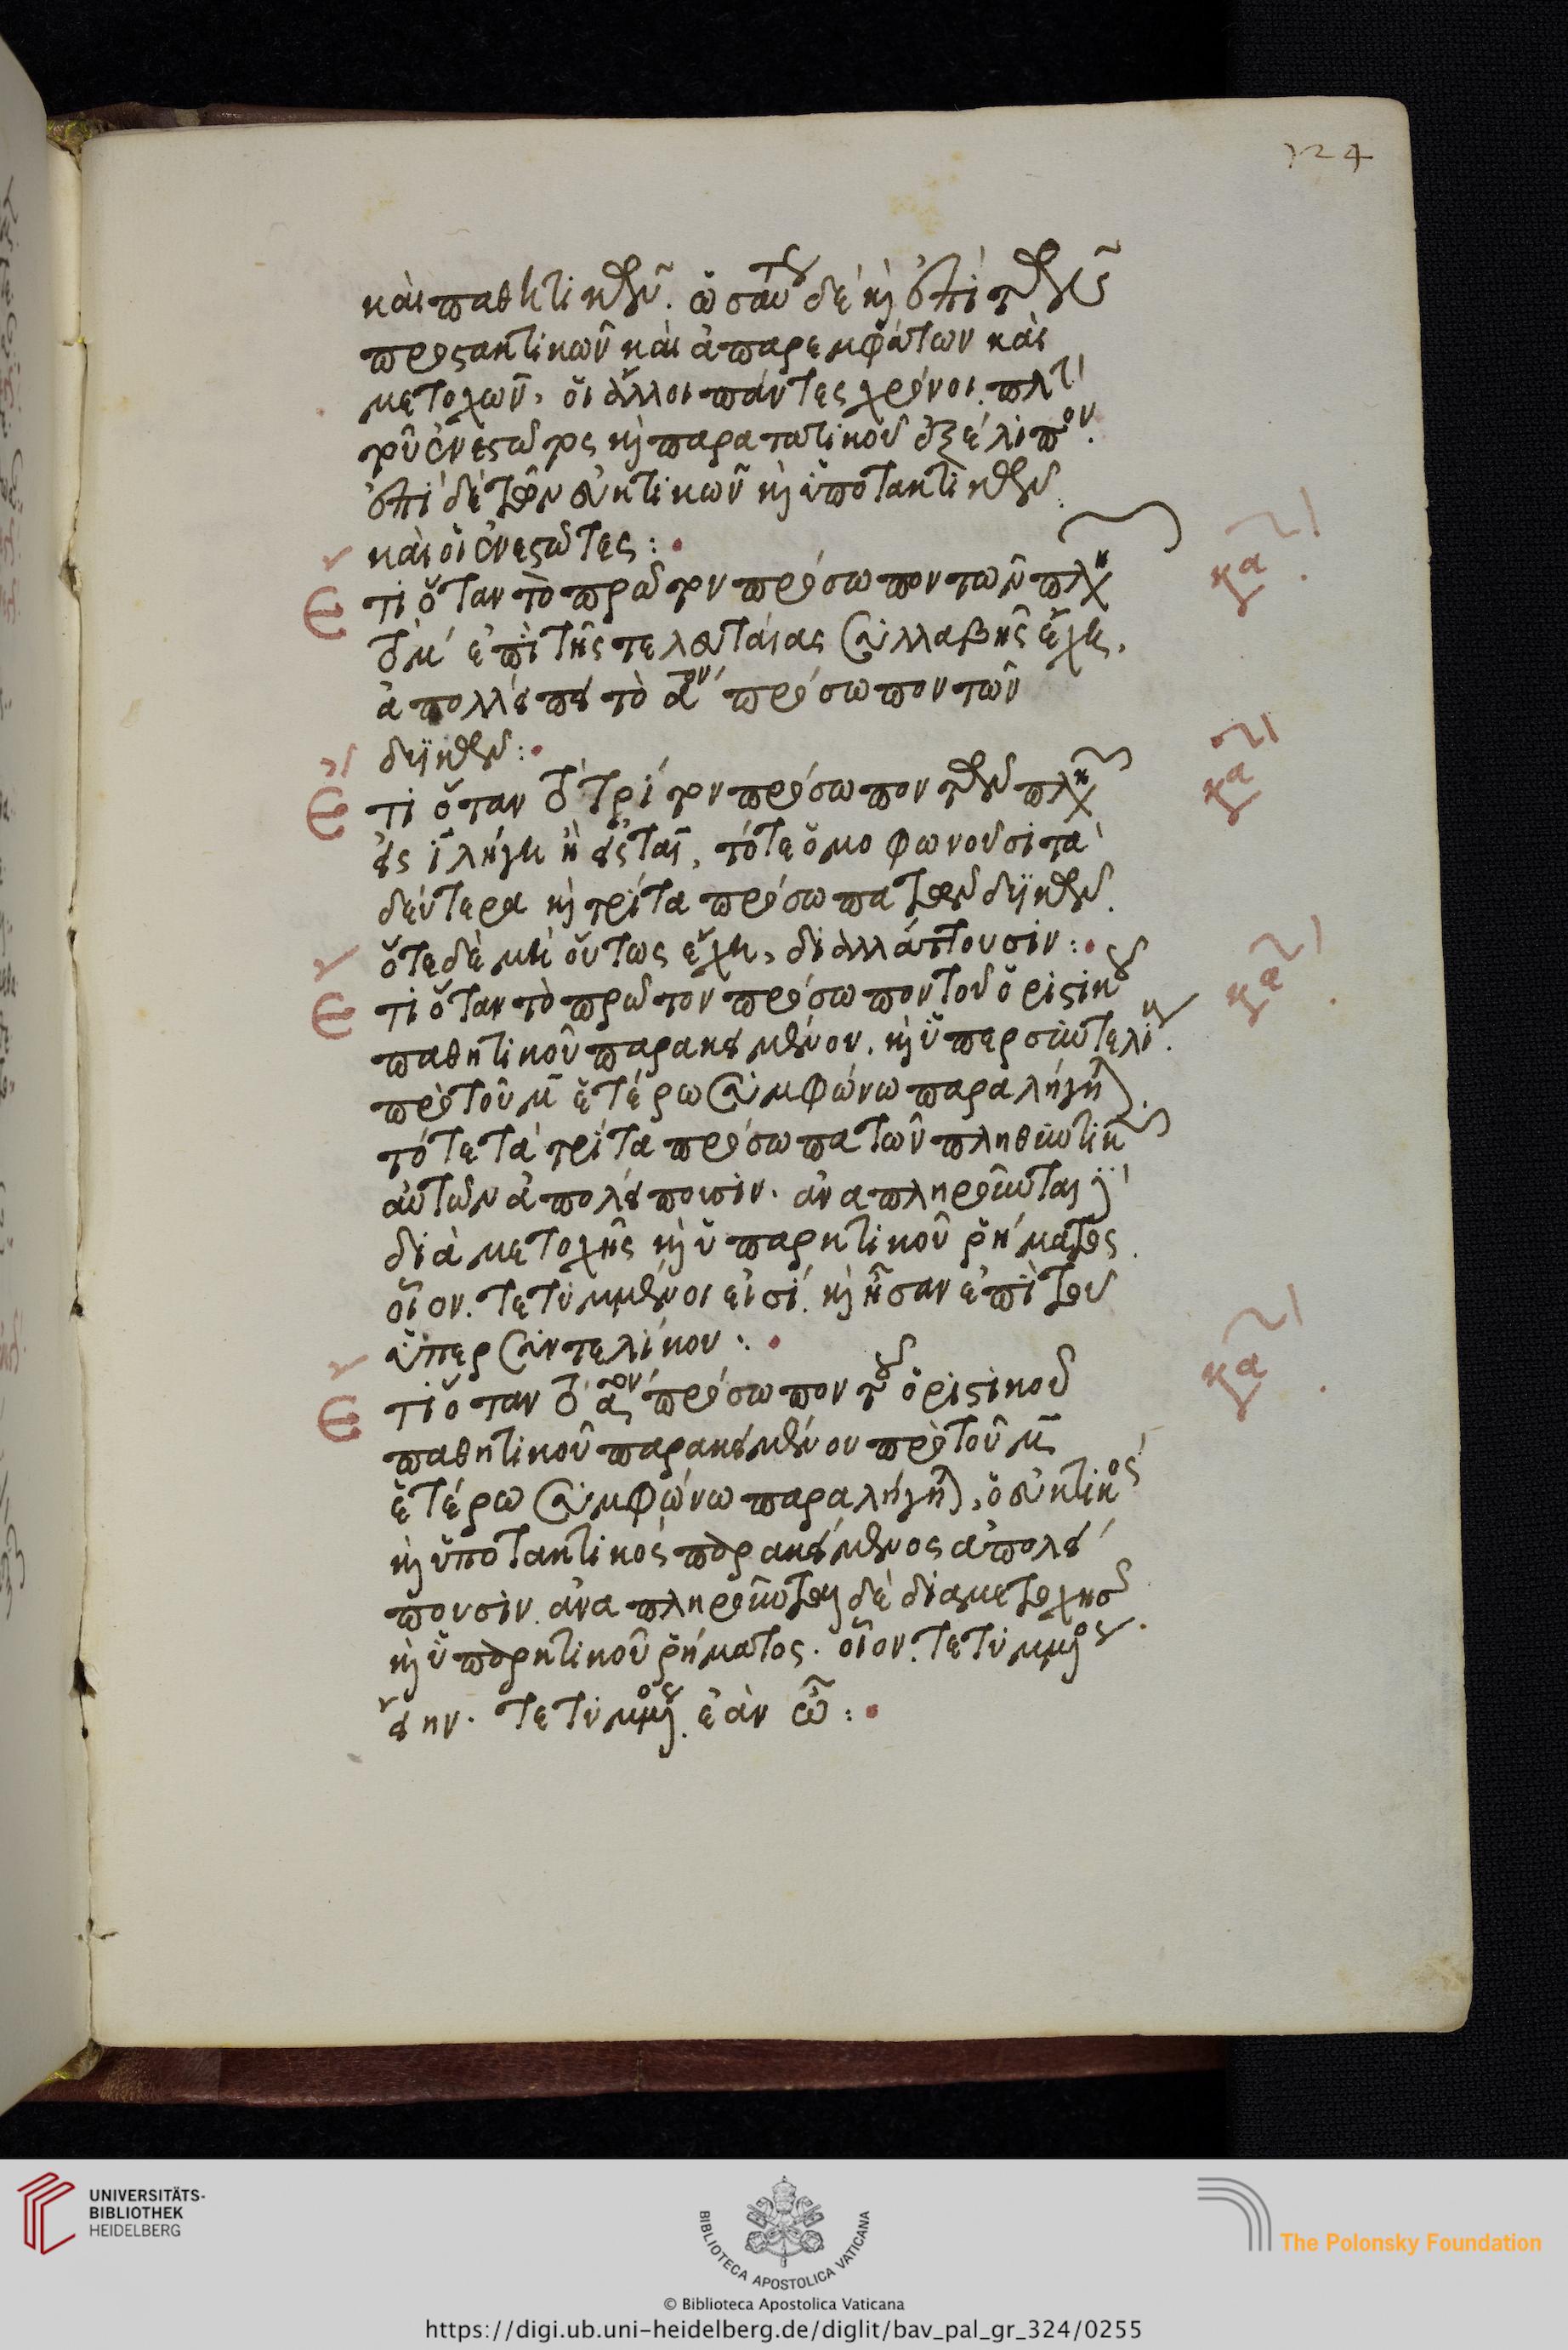 124
καὶ παθητικῶν. ὡσαύτως δὲ καὶ ἐπὶ τῶν
προστακτικῶν καὶ ἀπαρεμφάτων καὶ
μετοχῶν, οἱ ἄλλοι πάντες χρόνοι. πλὴν
τοῦ ἐνεστῶτος καὶ παρατατικοῦ ἐξέλιπον.
ἐπὶ δὲ τῶν εὐκτικῶν καὶ ὑποτακτικῶν
καὶ οἱ ἐνεστῶτες :
Ἔτι ὅταν τὸ πρῶτον πρόσωπον τῶν
τὸ μ ἐπὶ τῆς τελευταίας συλλαβῆς ἔχῃ,
ἀπολλείπει τὸ αον πρόσωπον τῶν
δυϊκῶν :
Ἔτι ὅταν τὸ τρίτον πρόσωπον τῶν
εἰς ῑ λήγῃ ἢ εἰς ται, τότε ὁμοφωνοῦσι τὰ
δεύτερα καὶ τρίτα πρόσωπα τῶν δυϊκῶν.
ὅτε δὲ μὴ οὕτως ἔχῃ, διαλλάττουσιν :
Ἔτι ὅταν τὸ πρῶτον πρόσωπον τοῦ ὁριστικοῦ
παθητικοῦ παρακειμένου. καὶ ὑπερσυντελίκου
πρὸ τοῦ μ̄ ἑτέρω συμφώνω παραλήγηται.
τότε τὰ τρίτα πρόσωπα τῶν πληθυντικῶν
αὐτῶν ἀπολείπουσιν. ἀναπληροῦνται
διὰ μετοχῆς καὶ ὑπαρκτικοῦ ῥήματος.
οἷον. τετυμμένοι εἰσί. καὶ ἦσαν ἐπὶ τοῦ
ὑπερσυντελίκου :
Ἔτι ὅταν τὸ αον πρόσωπον τοῦ ὁριστικοῦ
παθητικοῦ παρακειμένου πρὸ τοῦ μ̄
ἑτέρω συμφώνω παραλήγηται, ὁ εὐκτικὸς
καὶ ὑποτακτικὸς παρακείμενος ἀπολεί
πουσιν. ἀναπληροῦνται δὲ διὰ μετοχῆς
καὶ ὑπαρκτικοῦ ῥήματος. οἷον. τετυμμένος
εἴην. τετυμμένος ἐὰν ὦ :
UNIVERSITÄTS-
BIBLIOTHEK
HEIDELBERG
BIBLIOTECA APOSTOLICA VATICANA
The Polonsky Foundation
© Biblioteca Apostolica Vaticana
https://digi.ub.uni-heidelberg.de/diglit/bav_pal_gr_324/0255